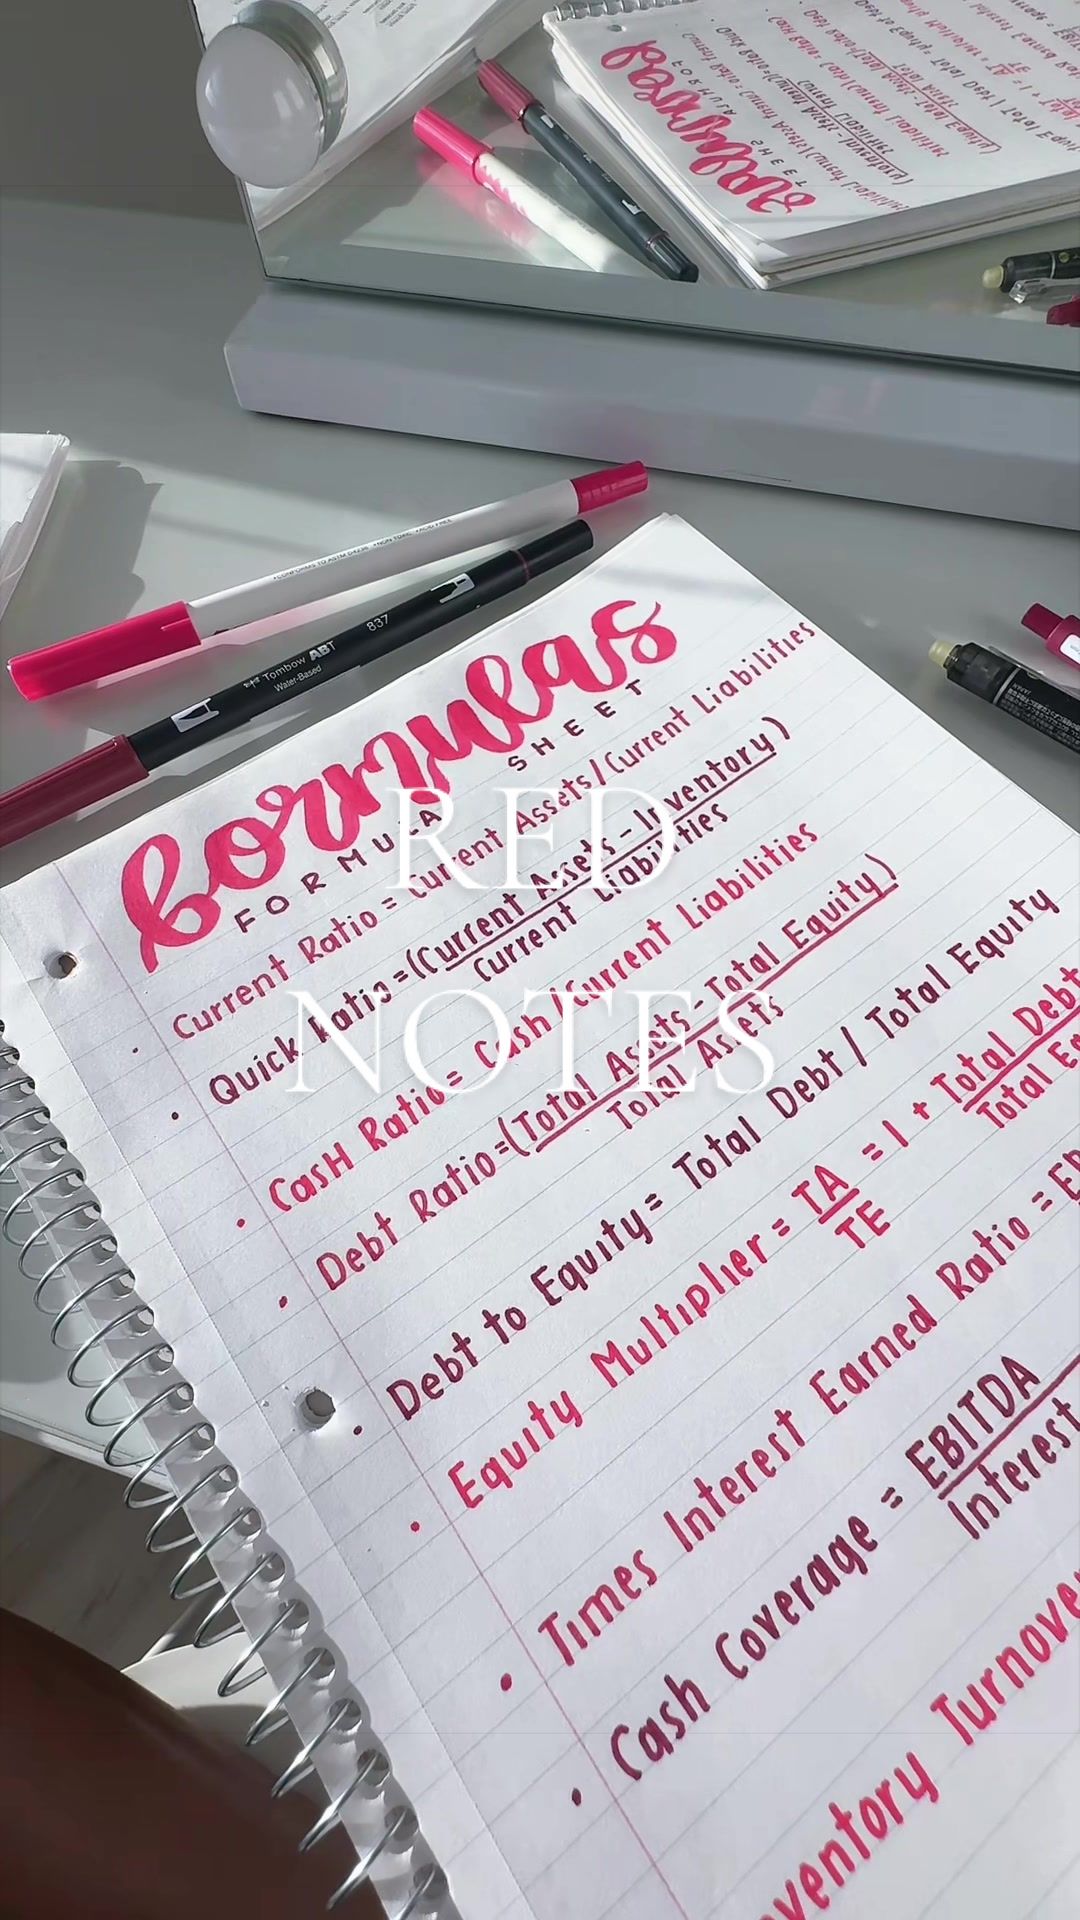 CONFORMS TO ASTM D4236 •NON TOXIC •ACID FREE
Tombow ABT 837
Water-Based
JAPAN
formulas
FORMULA SHEET
• Current Ratio = Current Assets/Current Liabilities
• Quick Ratio = (Current Assets - Inventory)
Current Liabilities
• CasH Ratio = Cash/Current Liabilities
• Debt Ratio = (Total Assets - Total Equity)
Total Assets
• Debt to Equity = Total Debt / Total Equity
• Equity Multiplier = TA = 1 + Total Debt
TE
Total
• Times Interest Earned Ratio =
• Cash Coverage = EBITDA
Interest
Inventory Turnover
RED
NOTES